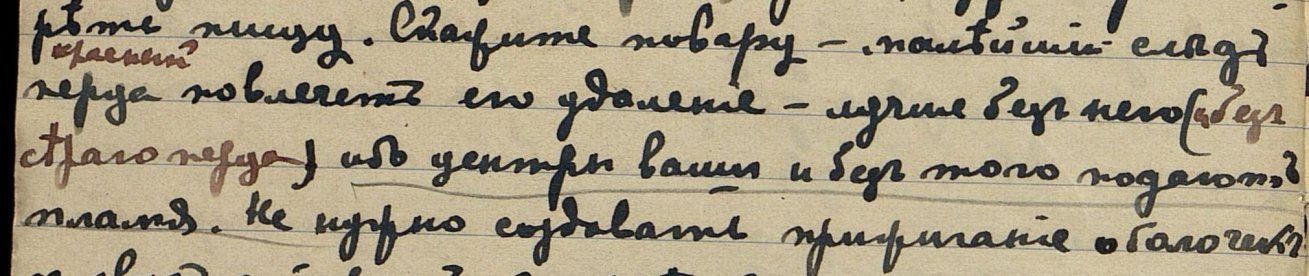 рѣть пищу. Скажите повару – малѣйшій слѣдъ
красный
перца повлечетъ его удаленіе – лучше безъ него (и безъ
сѣраго перца) ибо центры ваши и безъ того подаютъ
пламя. Не нужно создавать прижиганіе оболочекъ